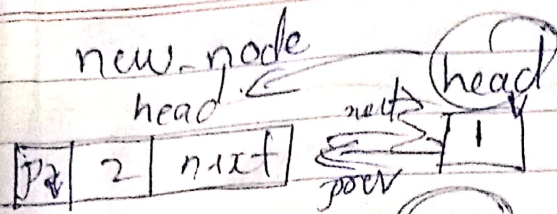 new_node
head
head
next
1
2
next
prev